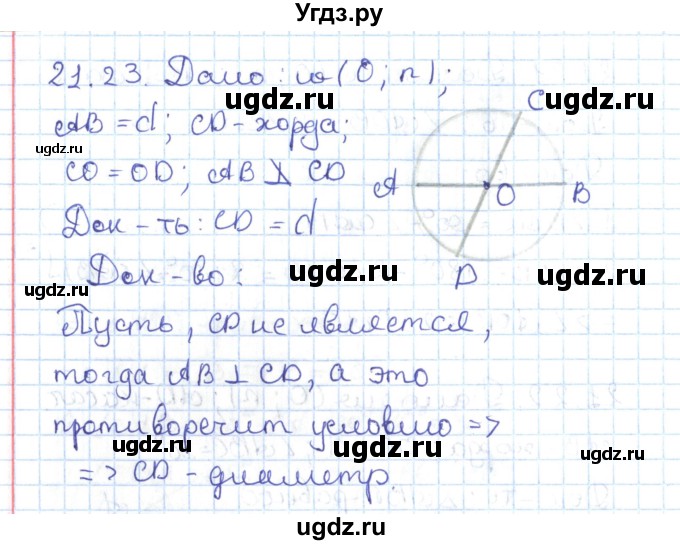 Угдз.ру
21.23. Дано: ω(O; r);
AB = d; CD - хорда;
CO = OD; AB ⊥̸ CD
Док-ть: CD = d
Док-во:
Пусть, CD не является,
тогда AB ⊥ CD, а это
противоречит условию =>
=> CD - диаметр.
C
A
O
B
D
ugdz.ru
ugdz.ru
ugdz.ru
ugdz.ru
ugdz.ru
ugdz.ru
ugdz.ru
ugdz.ru
ugdz.ru
ugdz.ru
ugdz.ru
ugdz.ru
ugdz.ru